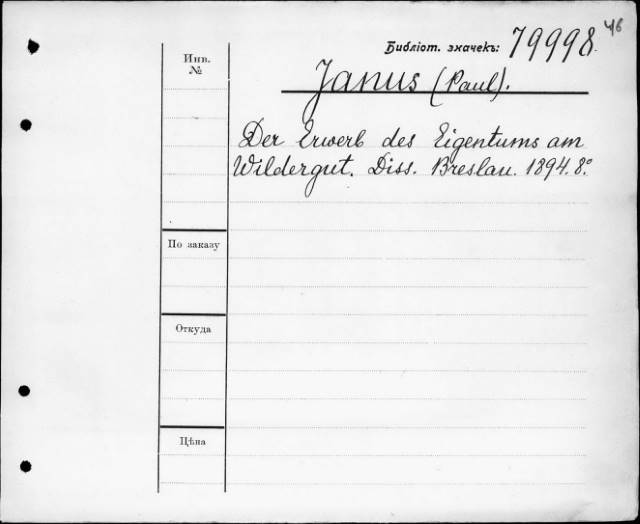 46
Библіот. значекъ: 79998.
Инв.
№
Janus (Paul).
Der Erwerb des Eigentums am
Wildergut. Diss. Breslau. 1894. 8°
По заказу
Откуда
Цѣна